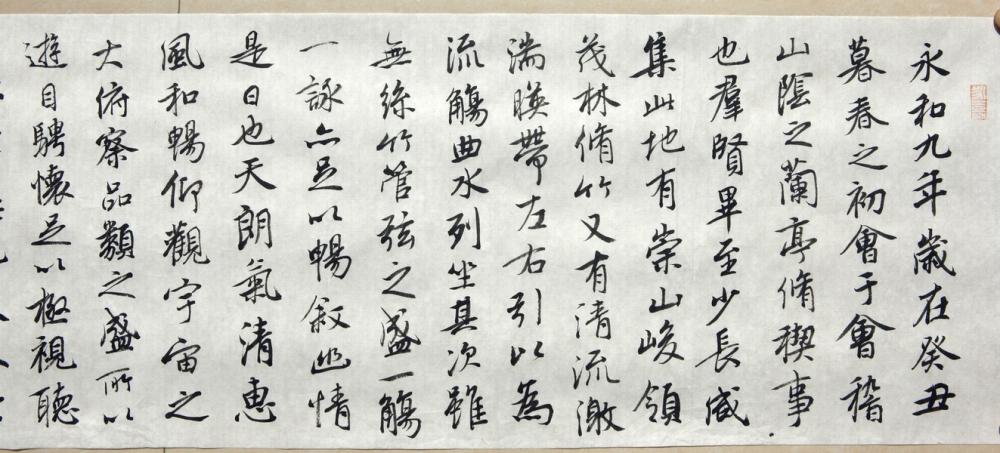 永和九年歲在癸丑
暮春之初會于會稽
山陰之蘭亭脩稧事
也羣賢畢至少長咸
集此地有崇山峻領
茂林脩竹又有清流激
湍暎帶左右引以為
流觴曲水列坐其次雖
無絲竹管弦之盛一觴
一詠亦足以暢叙幽情
是日也天朗氣清惠
風和暢仰觀宇宙之
大俯察品類之盛所以
遊目騁懷足以極視聽